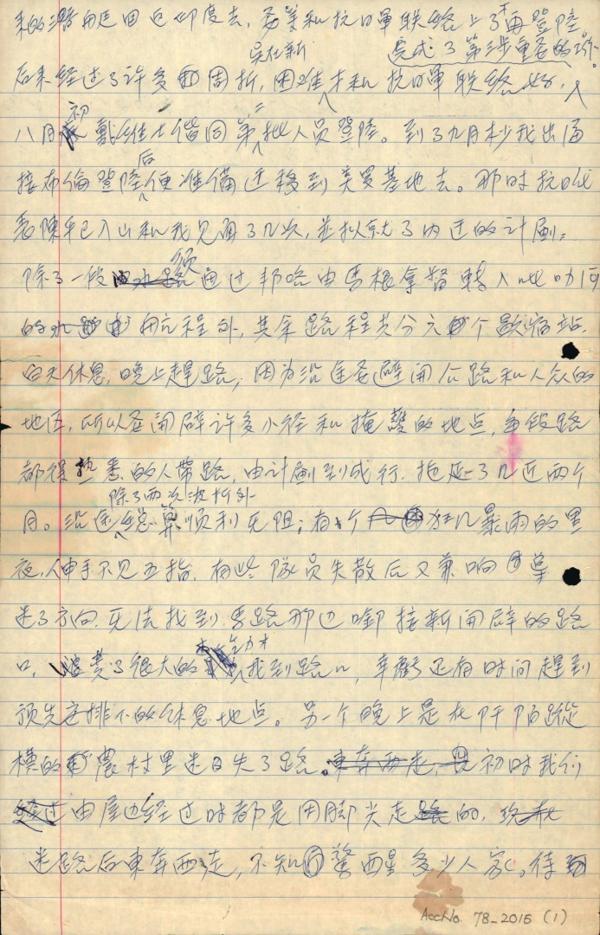 来的潜艇回印度去，
和抗日軍联络上了再登陸。
吳在新
完成了第三步重要的工作。
后来经过了许多周折，困难才和抗日軍联络好，
八月初戴維士偕同第二批人员登陸。到了九月杪我出海
接布倫登陸后便准備迁移到美罗基地去。那时抗日代
表陳平已入山和我见面了几次，並拟就了内迁的计劃：
除了一段水路須通过邦咯由馬根拿督轉入吡叻河
的水程外，其余路程共分六个歇宿站。
白天休息，晚上趕路，因为沿途要避開公路和人众的
地区，所以要開辟许多小径和掩蔽的地点，每段路
都得熟悉的人带路，由计劃到成行，拖延了几近两个
除了两次波折外
月。沿途总算順利无阻；有个狂风暴雨的黑
夜，伸手不见五指，有些隊员失散后又兼
迷了方向，无法找到馬路那边啣接新開辟的路
口，費了很大的力才找到路口，幸虧还有时间趕到
預先安排下的休息地点。另一个晚上是在阡陌縱
横的農村里迷失了路。東奔西走，初时我们
经过由屋边经过时都是用脚尖走的，
迷路后東奔西走，不知驚醒多少人家。待
AccNo. 78_2015 (1)